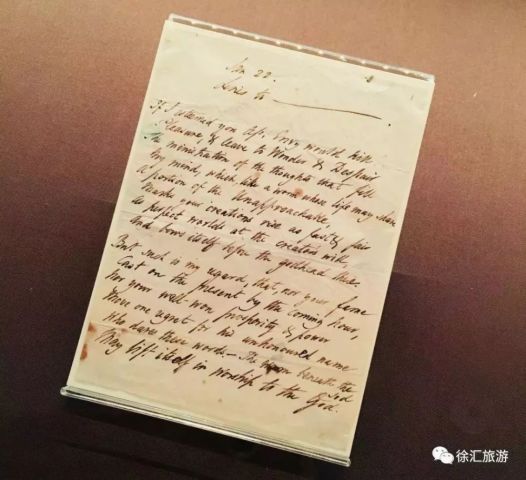 Jan 22.
Lines to
If I esteemed you less, Envy would kill
Pleasure, & leave to Wonder & Despair
The ministration of the thoughts that fill
My mind, which like a worm whose life may share
A portion of the Unapproachable,
Marks your creations rise as fast & fair
As perfect worlds at the creators will
And bows itself before the godhead there.
But such is my regard, that, nor your fame
Cast on the present by the coming hour,
Nor your well-won prosperity & power
Move one regret for his unhonoured name
Who dares these words.— The worm beneath the sod
May lift itself in worship to the God.
徐汇旅游